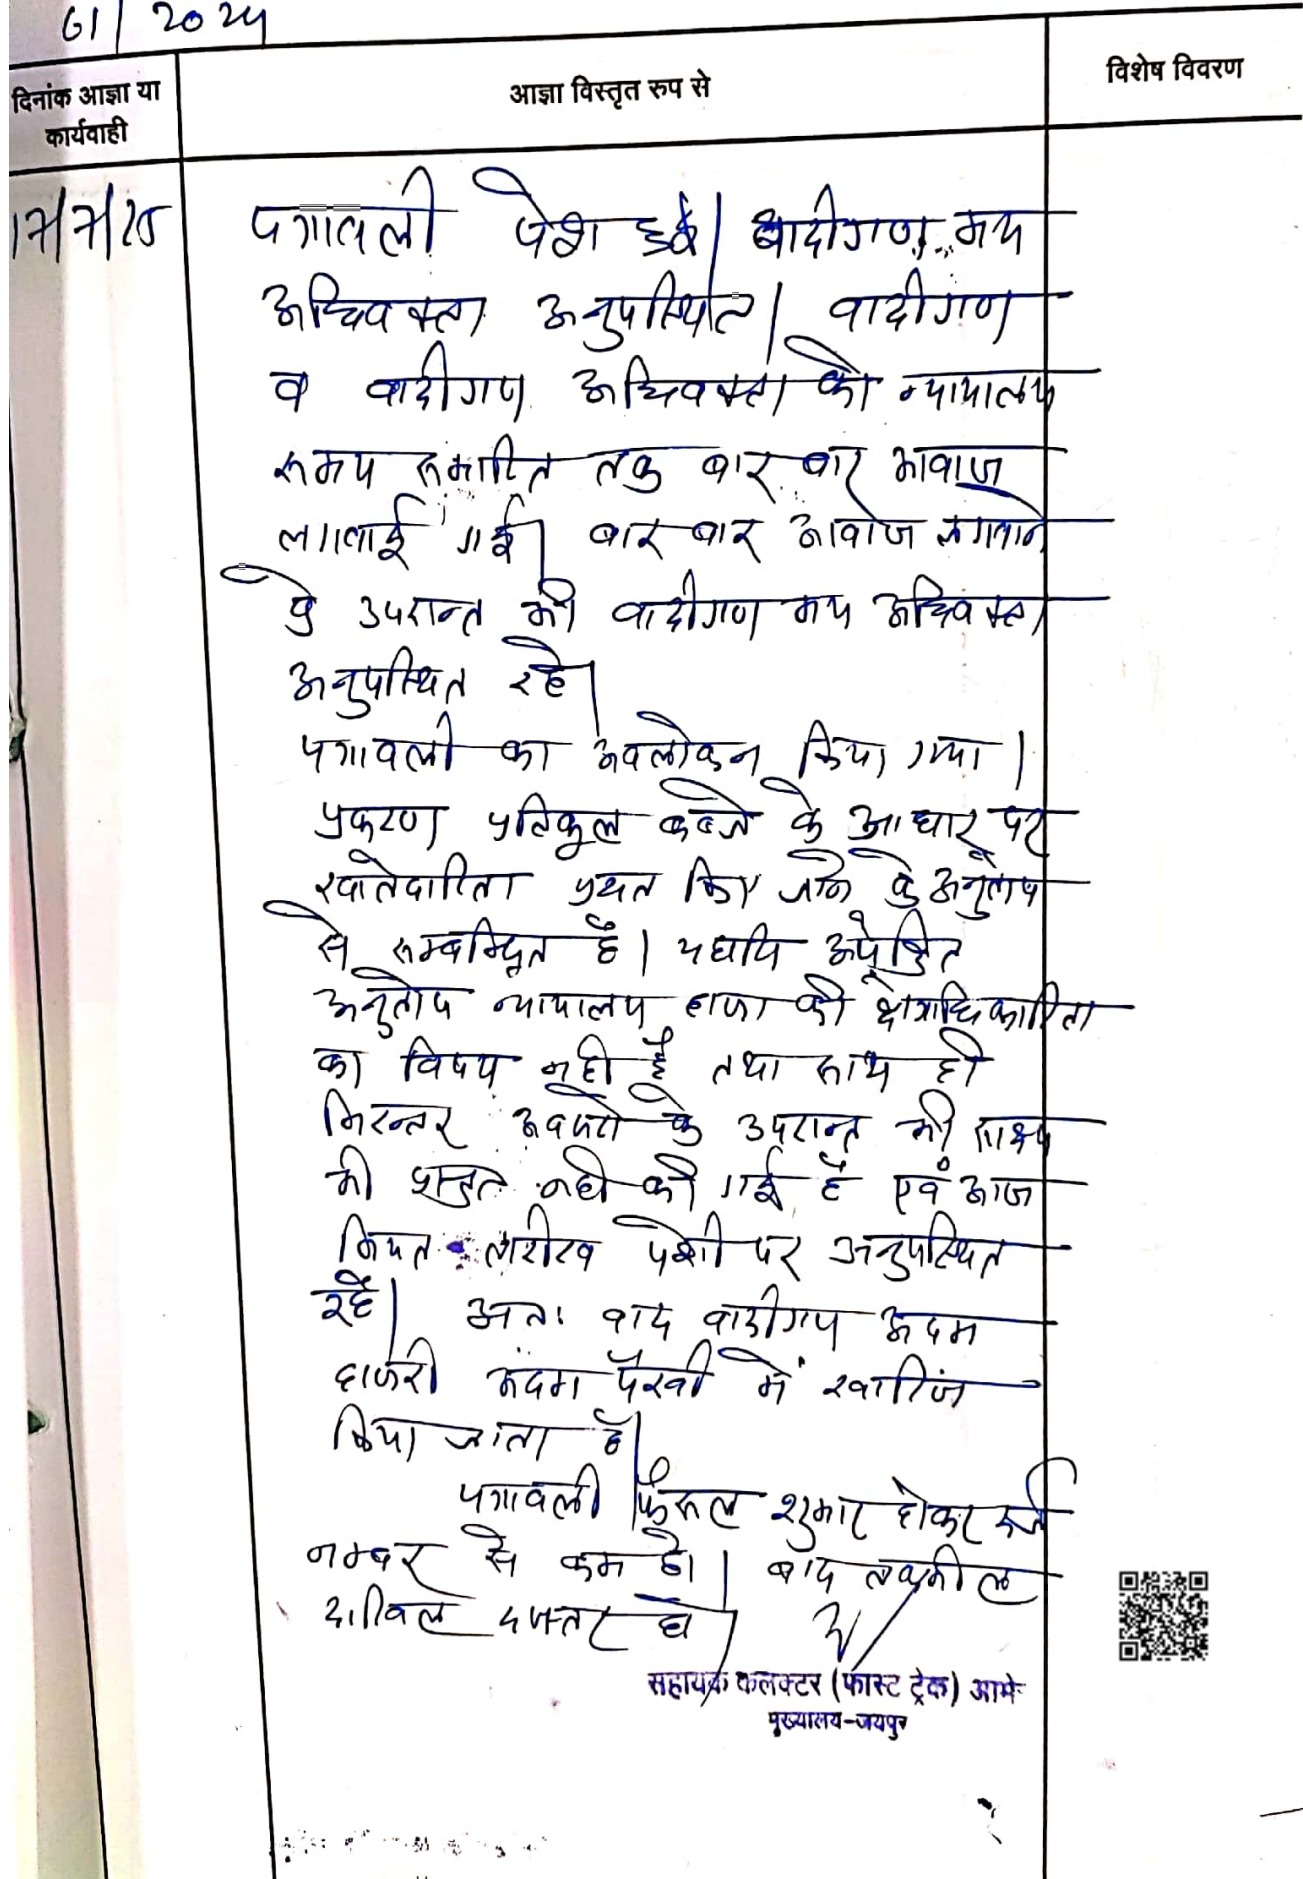 61/2024
दिनांक आज्ञा या
कार्यवाही
आज्ञा विस्तृत रुप से
विशेष विवरण
17/7/25
पत्रावली पेश हुई। वादीगण मय
अधिवक्ता अनुपस्थित। वादीगण
व वादीगण अधिवक्ता को न्यायालय
समय समाप्ति तक बार बार आवाज
लगवाई गई। बार बार आवाज लगवाने
के उपरान्त भी वादीगण मय अधिवक्ता
अनुपस्थित रहे।
पत्रावली का अवलोकन किया गया।
प्रकरण प्रतिकूल कब्जे के आधार पर
खातेदारिता प्रदान किए जाने के अनुतोष
से सम्बन्धित है। यद्यपि अपेक्षित
अनुतोष न्यायालय हाजा की क्षेत्राधिकारिता
का विषय नही है तथा साथ ही
निरन्तर अवसरो के उपरान्त भी साक्ष्य
भी प्रस्तुत नही की गई है एवं आज
नियत तारीख पेशी पर अनुपस्थित
रहे। अतः वाद वादीगण अदम
हाजरी अदम पैरवी में खारिज
किया जाता है।
पत्रावली फैसल शुमार होकर दर्ज
नम्बर से कम हो। बाद तकमील
दाखिल दफ्तर हो।
सहायक कलक्टर (फास्ट ट्रेक) आमे
मुख्यालय-जयपुर